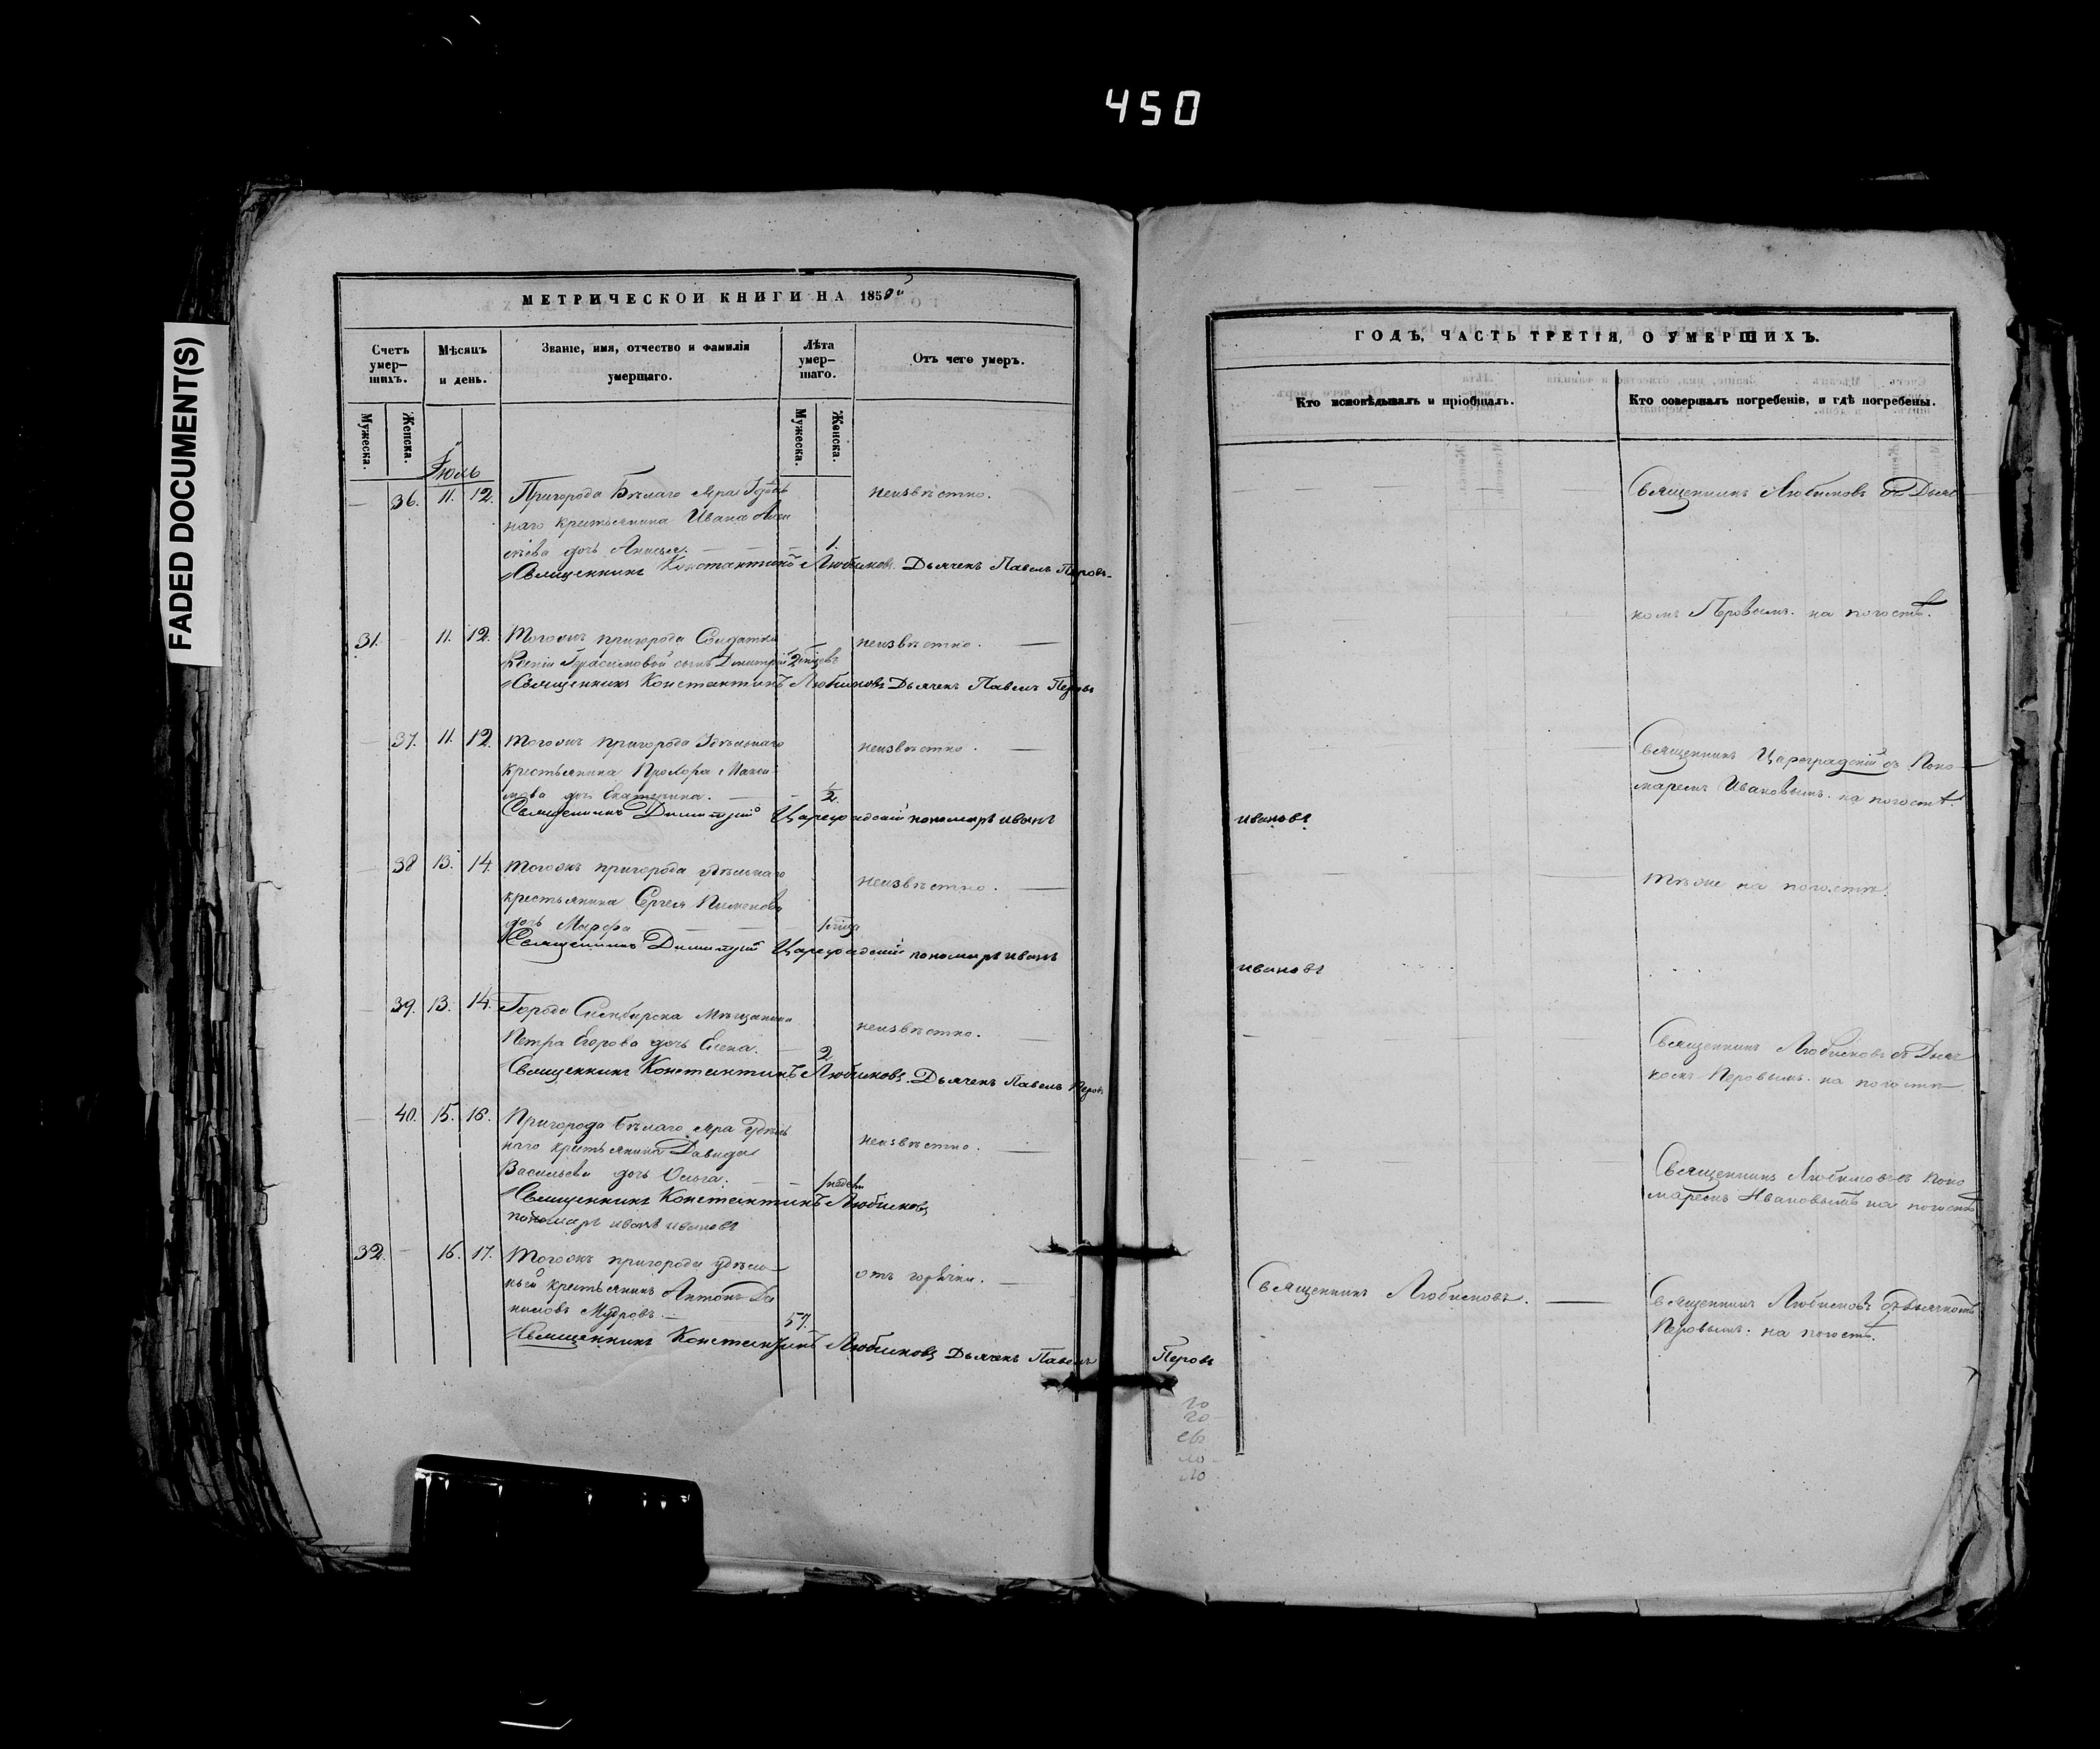 450
FADED DOCUMENT(S)
МЕТРИЧЕСКОЙ КНИГИ НА 1850й
Счетъ умер-шихъ.
Мѣсяцъ и день.
Званіе, имя, отчество и фамилія умершаго.
Лѣта умер-шаго.
Отъ чего умеръ.
Мужеска.
Женска.
Мужеска.
Женска.
Іюль
36. 11. 12. Пригорода Бѣлаго Яра Удѣль
неизвѣстно.
наго крестьянина Ивана
дочь Анисья. 1.
Священникъ Константинъ Любимовъ. Дьячекъ Павелъ Перовъ.
31. 11. 12. Тогожъ пригорода Солдатки
неизвѣстно.
Ксеніи Герасимовой сынъ Димитрій 2
Священникъ Константинъ Любимовъ Дьячекъ Павелъ Перовъ
37. 11. 12. Тогожъ пригорода Удѣльнаго
неизвѣстно.
крестьянина Прохора Макси-
мова дочь Екатерина. 1/2.
Священникъ Димитрій Цареградскій пономарь иванъ
38 13. 14. Тогожъ пригорода удѣльнаго
неизвѣстно.
крестьянина Сергея Пименова
дочь Марфа 1 года
Священникъ Димитрій Цареградскій пономарь иванъ
39. 13. 14. Города Симбирска Мѣщанина
неизвѣстно.
Петра Егорова дочь Елена. 2
Священникъ Константинъ Любимовъ. Дьячекъ Павелъ Перовъ
40. 15. 16. Пригорода Бѣлаго Яра Удѣль
неизвѣстно.
наго крестьянина Давида
Васильева дочь Ольга. 1
Священникъ Константинъ Любимовъ
пономарь иванъ ивановъ
32. 16. 17. Тогожъ пригорода удѣль-
отъ горячки.
ный крестьянинъ Антонъ Да
ниловъ Мудровъ. 57.
Священникъ Константинъ Любимовъ Дьячекъ Павелъ Перовъ
ГОДЪ, ЧАСТЬ ТРЕТІЯ, О УМЕРШИХЪ.
Кто исповѣдывалъ и пріобщалъ.
Кто совершалъ погребеніе, и гдѣ погребены.
Священникъ Любимовъ съ Дьяч
комъ Перовымъ. на погостѣ.
Священникъ Цареградскій съ Поно-
маремъ Ивановымъ. на погостѣ.
ивановъ
Тѣже на погостѣ.
ивановъ
Священникъ Любимовъ съ Дьяч
комъ Перовымъ. на погостѣ
Священникъ Любимовъ съ Поно
маремъ Ивановымъ на погостѣ
Священникъ Любимовъ.
Священникъ Любимовъ съ Дьячкомъ
Перовымъ. на погостѣ.
го
го
евъ
ло
ло